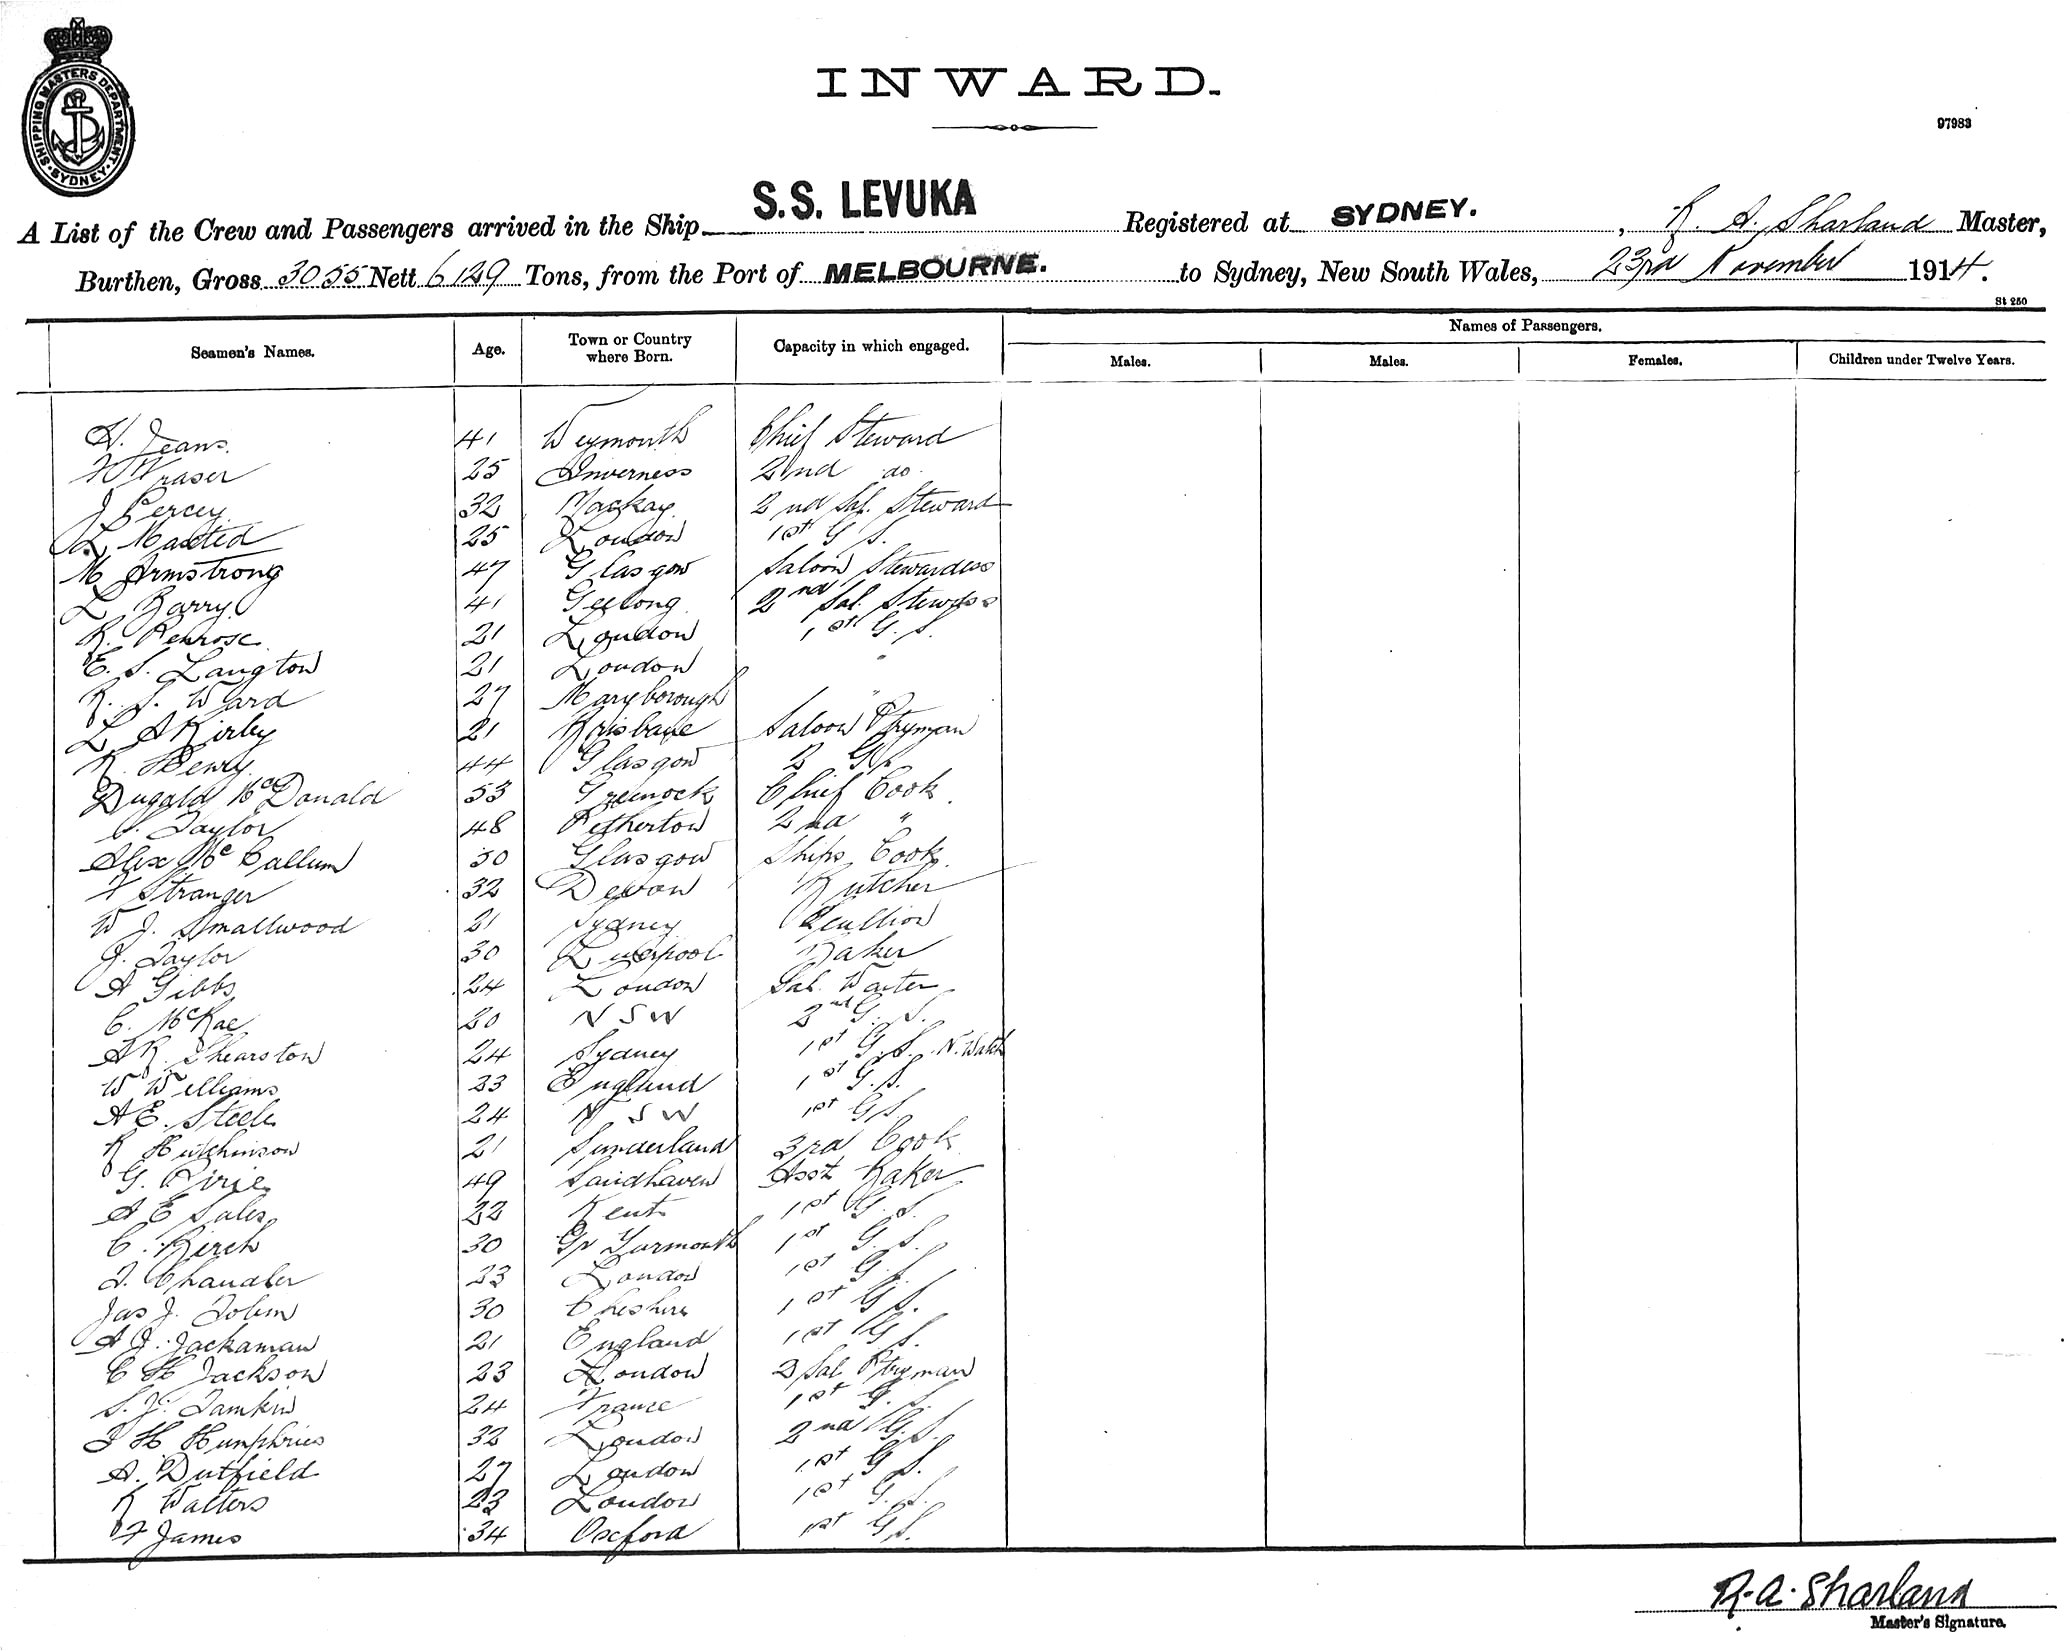 SHIPPING MASTERS DEPARTMENT
SYDNEY
INWARD.
97983
A List of the Crew and Passengers arrived in the Ship S.S. LEVUKA Registered at SYDNEY. , R. A. Sharland Master,
Burthen, Gross 3055 Nett 6129 Tons, from the Port of MELBOURNE. to Sydney, New South Wales, 23rd November 1914.
St 250
Seamen's Names. Age. Town or Country where Born. Capacity in which engaged. Names of Passengers.
Males. Males. Females. Children under Twelve Years.
H. Jeans 41 Weymouth Chief Steward
Fraser 25 Inverness 2nd do
J Percy 32 Mackay 2nd Sal. Steward
L Maxted 25 London 1st G S.
M Armstrong 47 Glasgow Saloon Stewardess
L Barry 41 Geelong 2nd Sal. Stewdss
R. Penrose 21 London 1st G. S.
E. S. Langton 21 London "
R. S. Ward 27 Maryborough "
L A Kirby 21 Brisbane Saloon Ptryman
R. Henry 44 Glasgow 2 GP
Dugald McDonald 53 Greenock Chief Cook
Taylor 48 Petherton 2nd "
Alex McCallum 30 Glasgow Ships Cook
F Stranger 32 Devon Butcher
W J. Smallwood 21 Sydney Scullion
J. Taylor 30 Liverpool Baker
A Gibbs 24 London Sal. Waiter
C. McRae 20 N S W 2nd G. S.
A R. Shearston 24 Sydney 1st G S. N. Watch
W Williams 23 England 1st G. S.
A E. Steele 24 N S W 1st G S.
R Hutchinson 21 Sunderland 3rd Cook
G. Pirie 49 Sandhaven Asst Baker
A E Sales 22 Kent 1st G. S.
C. Birch 30 Gr Yarmouth 1st G. S.
J. Chandler 23 London 1st G S.
Jas J. Tolum 30 Cheshire 1st G S.
A J. Jackaman 21 England 1st G S.
C H Jackson 23 London 2 Sal Ptryman
S. J. Tamkin 24 France 1st G. S.
J H Humphries 32 London 2nd G. S.
A. Dutfield 27 London 1st G S.
R Walters 23 London 1st G. S.
F James 34 Oxford 1st G S.
R. A. Sharland
Master's Signature.